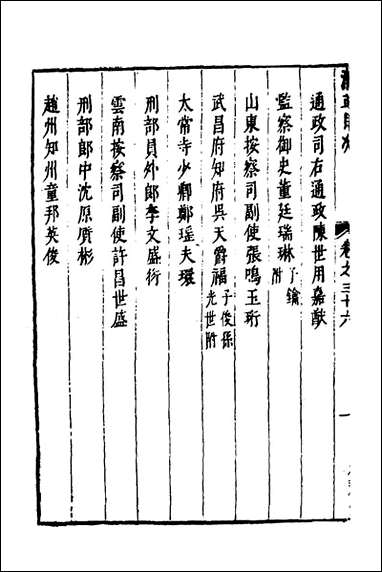 卷之三十六
一
通政司右通政陳世用嘉猷
監察御史董廷瑞琳子鑰附
山東按察司副使張鳴玉珩
武昌府知府吳天爵福子俊孫光世附
太常寺少卿鄭瑤夫環
刑部員外郎李文盛衍
雲南按察司副使許昌世盛
刑部郎中沈原質彬
趙州知州童邦英俊